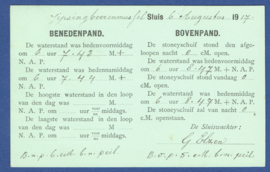 Sluis 6 Augustus 1917.
BENEDENPAND.
De waterstand was hedenvoormiddag
om 6 uur 7.43 M. +
N. A. P.
De waterstand was hedennamiddag
om 6 uur 7.44 M. +
N. A. P.
De hoogste waterstand in den loop
van den dag was M.
N. A. P. om uur middags.
De laagste waterstand in den loop
van den dag was M.
N. A. P. om uur middags.
BOVENPAND.
De stoneyschuif stond den afge-
loopen nacht 0 c.M. open.
De waterstand was hedenvoormiddag
om 6 uur 8.47 M. +
N. A. P.
De stoneyschuif stond vandaag 0
c.M. open.
De waterstand was hedennamiddag
om 6 uur 8.47 M. +
N. A. P.
De stoneyschuif zal van nacht 0
c.M. openstaan.
De Sluismeester: